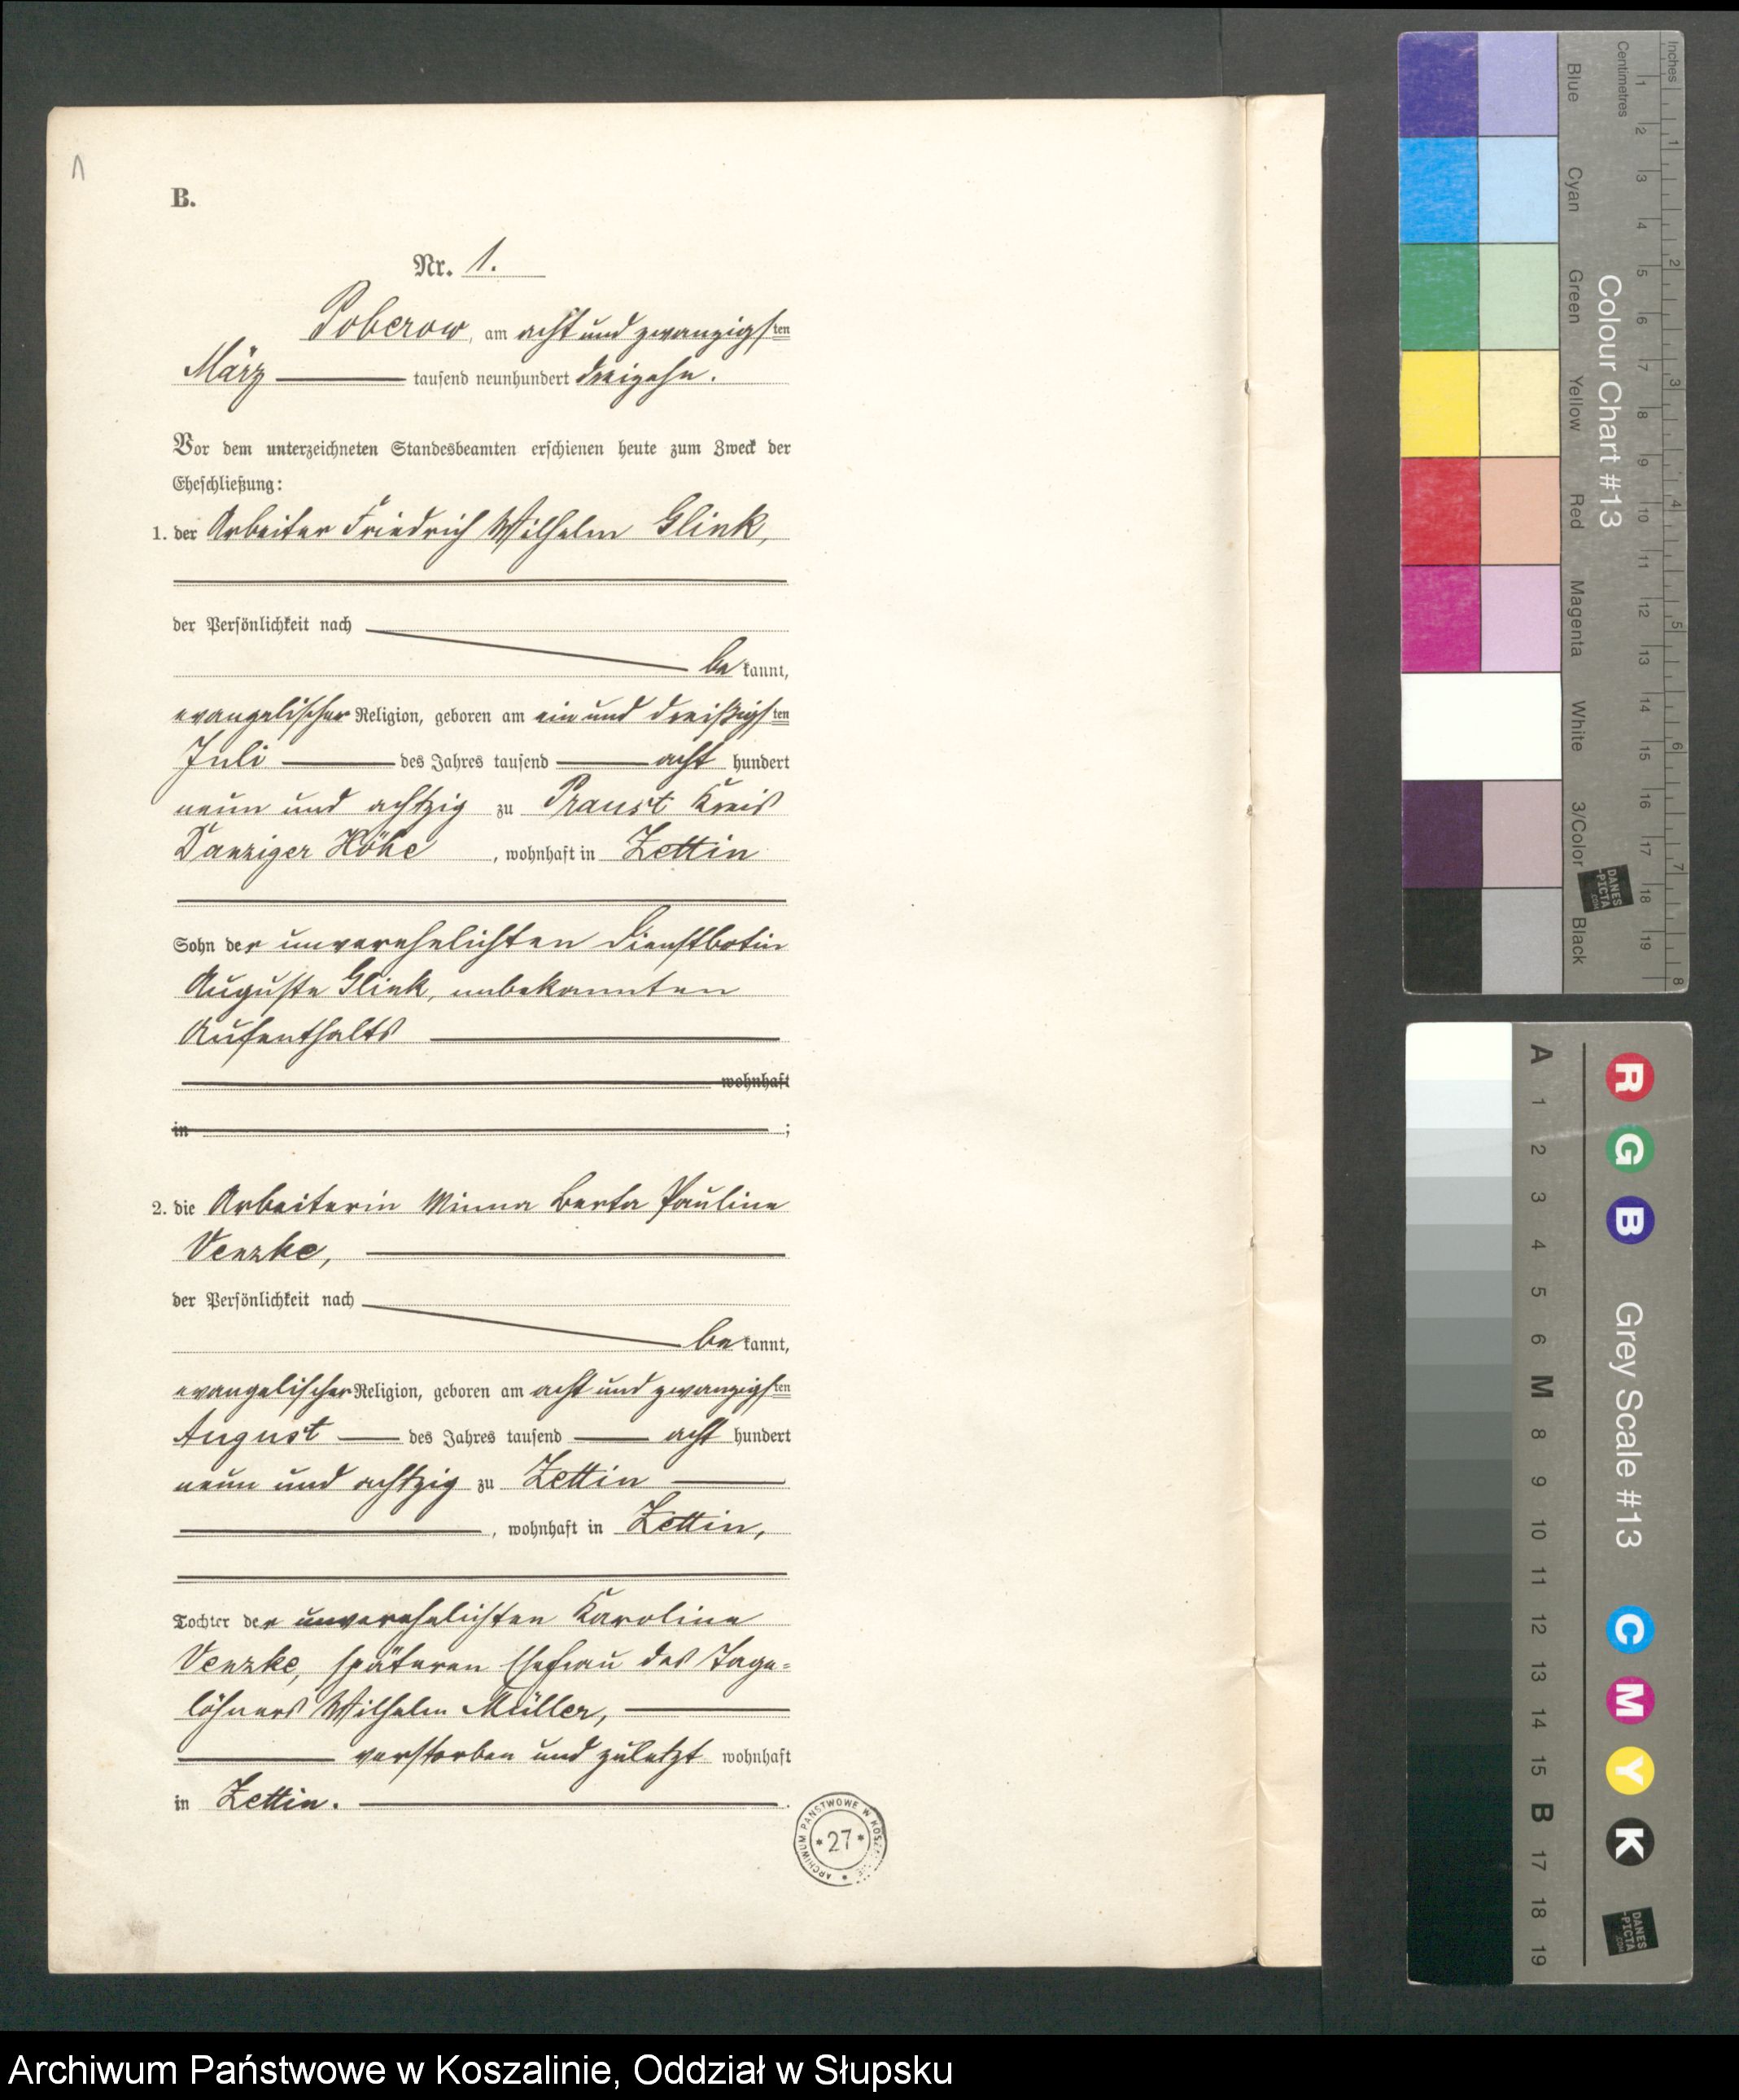 B.
Nr. 1.
Poberow, am acht und zwanzigsten
März tausend neunhundert dreizehn.
Vor dem unterzeichneten Standesbeamten erschienen heute zum Zweck der
Eheschließung:
1. der Arbeiter Friedrich Wilhelm Glink,
der Persönlichkeit nach
be kannt,
evangelischer Religion, geboren am ein und dreißigsten
Juli des Jahres tausend acht hundert
neun und achtzig zu Praust Kreis
Danziger Höhe, wohnhaft in Zettin
Sohn der unverehelichten Dienstbotin
Auguste Glink, unbekannten
Aufenthalts
wohnhaft
in ;
2. die Arbeiterin Minna Berta Pauline
Venzke,
der Persönlichkeit nach
be kannt,
evangelischer Religion, geboren am acht und zwanzigsten
August des Jahres tausend acht hundert
neun und achtzig zu Zettin
, wohnhaft in Zettin,
Tochter der unverehelichten Karoline
Venzke, späteren Ehefrau des Tage=
löhners Wilhelm Müller,
verstorben und zuletzt wohnhaft
in Zettin.
ARCHIWUM PAŃSTWOWE W
* 27 *
Inches
Centimetres
1 2 3 4 5 6 7 8 9 10 11 12 13 14 15 16 17 18 19
1 2 3 4 5 6 7 8
Blue Cyan Green Yellow Red Magenta White 3/Color Black
Colour Chart #13
DANES
-PICTA
.COM
A 1 2 3 4 5 6 M 8 9 10 11 12 13 14 15 B 17 18 19
R G B
Grey Scale #13
C M Y K
DANES
-PICTA
.COM
Archiwum Państwowe w Koszalinie, Oddział w Słupsku